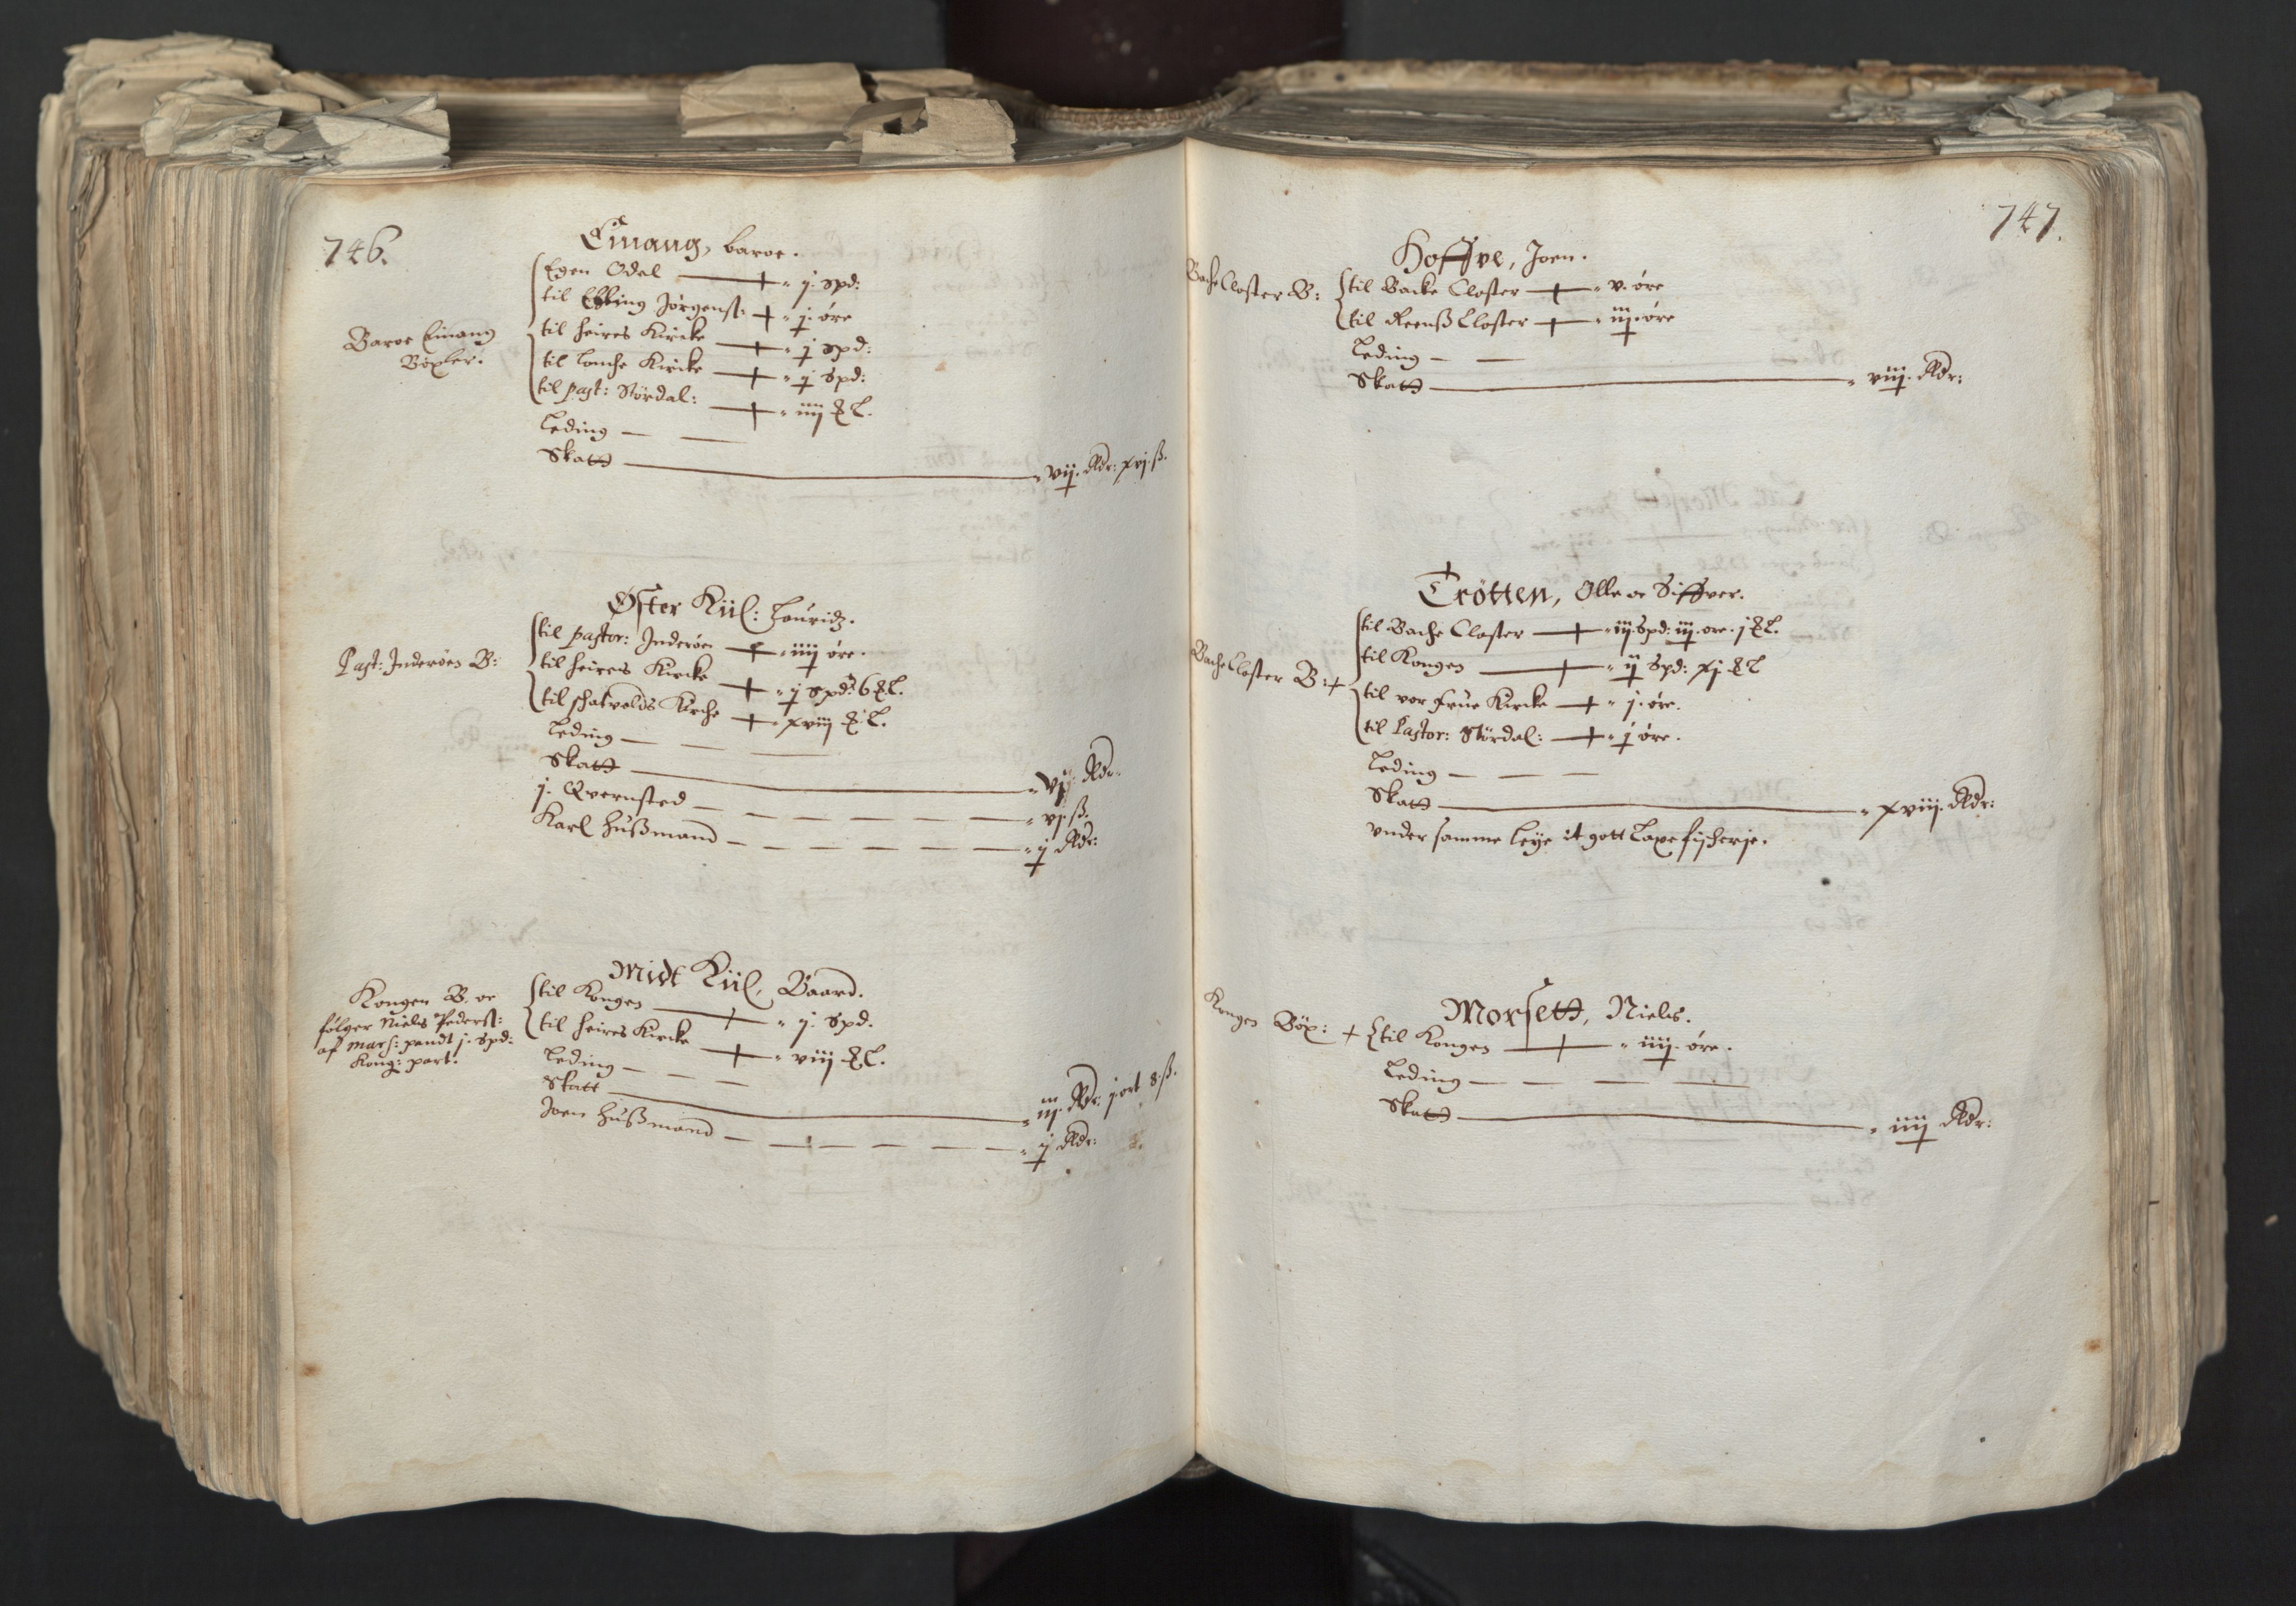 746.
Einang, baroe.
Baroe Einang
Böxler.
Egen Odel — + - j. spd:
til Ebbing Jörgens: + - j. öre
til heires Kircke — + - j spd:
til lonche Kircke — + - j Spd:
til past: Stördal: — + - iiij ℔ L.
Leding — —
Skatt — - vij. Rdr: xvj. ß.
Öster Kiil: Louridz.
Past: Inderöen B:
til pastor: Inderöen — + - iiij öre.
til heires Kircke — + - j spd: 6 ℔ L.
til schatvolds Kirche — + - xviij ℔ L.
Leding — — —
Skatt — - vj. Rdr.
j. Qvernsted — — — — — - vj. ß.
Karl Hußmand — — — — — - j Rdr:
Midt Kiil, Baard.
Kongen B. oc
fölger Niels Peders:
af mars: pandt j. spd:
Kong: part.
til Kongen — + - j. Spd.
til heires Kircke — + - viij ℔ L.
Leding — — —
Skatt — - iij. Rdr: j. ort 8. ß.
Joen Hußmand — — — — — - j Rdr:
747.
Hoffve, Joen.
Bache Closter B:
til Backe Closter — + - v. öre
til Reenß Closter — + - iij. öre
Leding — —
Skatt — - viij. Rdr:
Trötten, Olle oc Siffver.
Bache Closter B: +
til Bache Closter — + - iij. Spd: iij. ore. j ℔ L.
til Kongen — + - ij Spd: xj. ℔ L
til vor frue Kircke — + - j. öre.
til Pastor: Stördal: — + - j öre.
Leding — — —
Skatt — - xviij. Rdr:
vnder samme leye it gott Laxefischerje.
Morsett, Niels.
Kongen Böx: +
til Kongen — + - iiij. öre.
Leding — — — —
Skatt — - iiij Rdr: